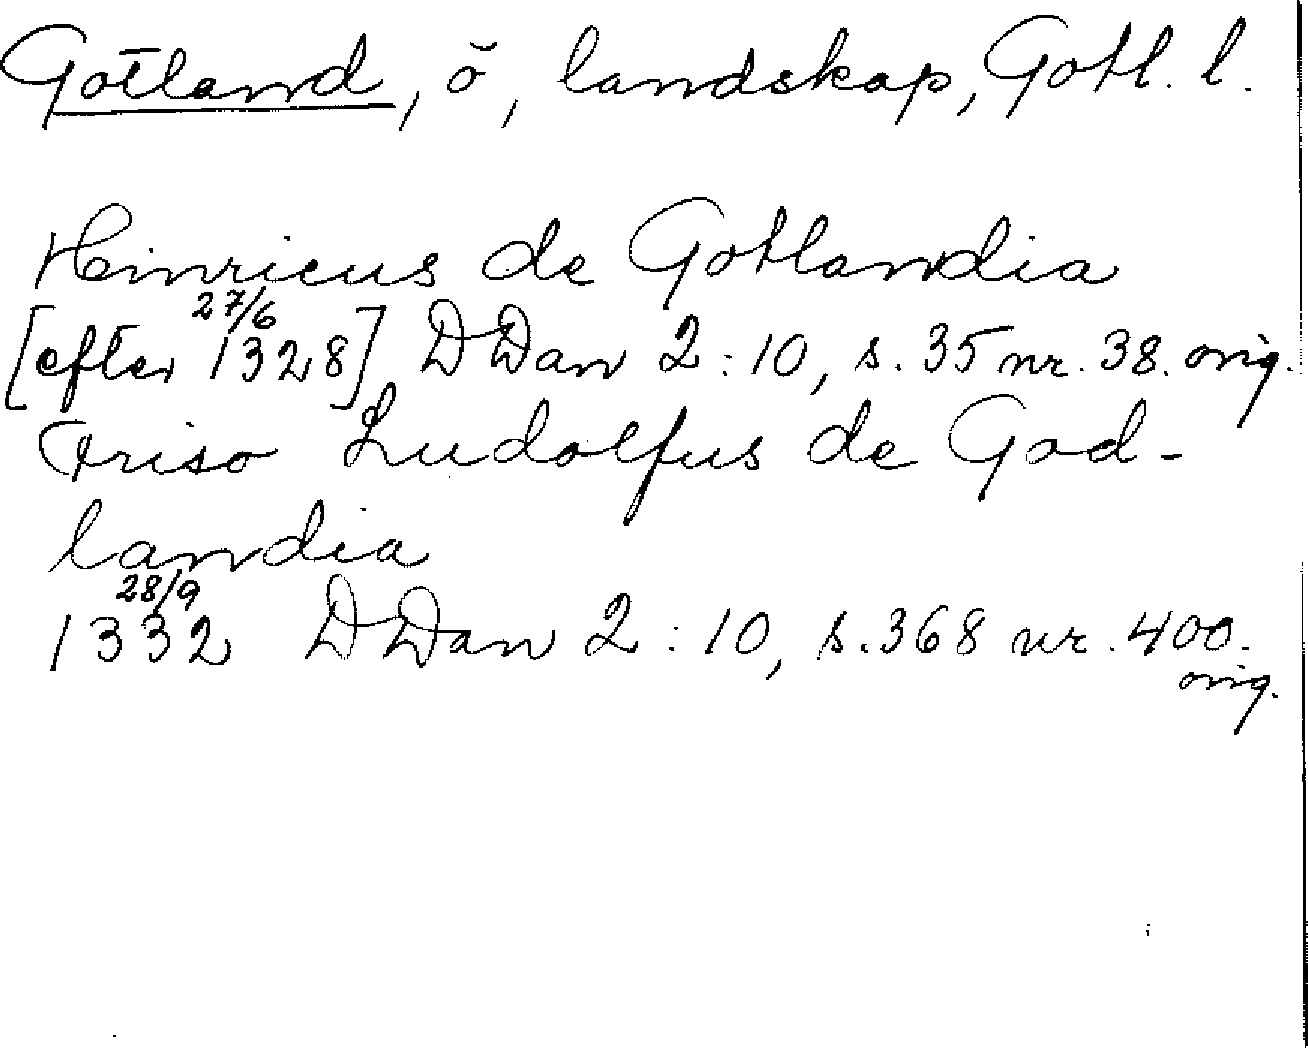 Gotland, ö, landskap, Gotl. l.
Heinricus de Gotlandia
[efter 27/6 1328] DDan 2:10, s. 35 nr. 38. orig.
Friso Ludolfus de God-
landia
28/9
1332 DDan 2:10, s. 368 nr. 400.
orig.